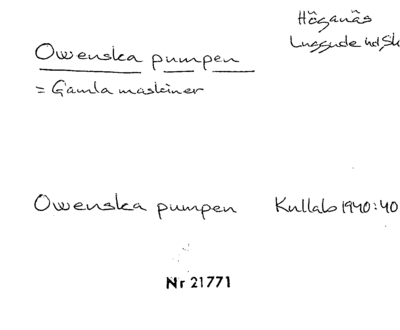 Höganäs
Luggude hd Sk
Owenska pumpen
= Gamla maskiner
Owenska pumpen Kullab 1940:40
Nr 21771